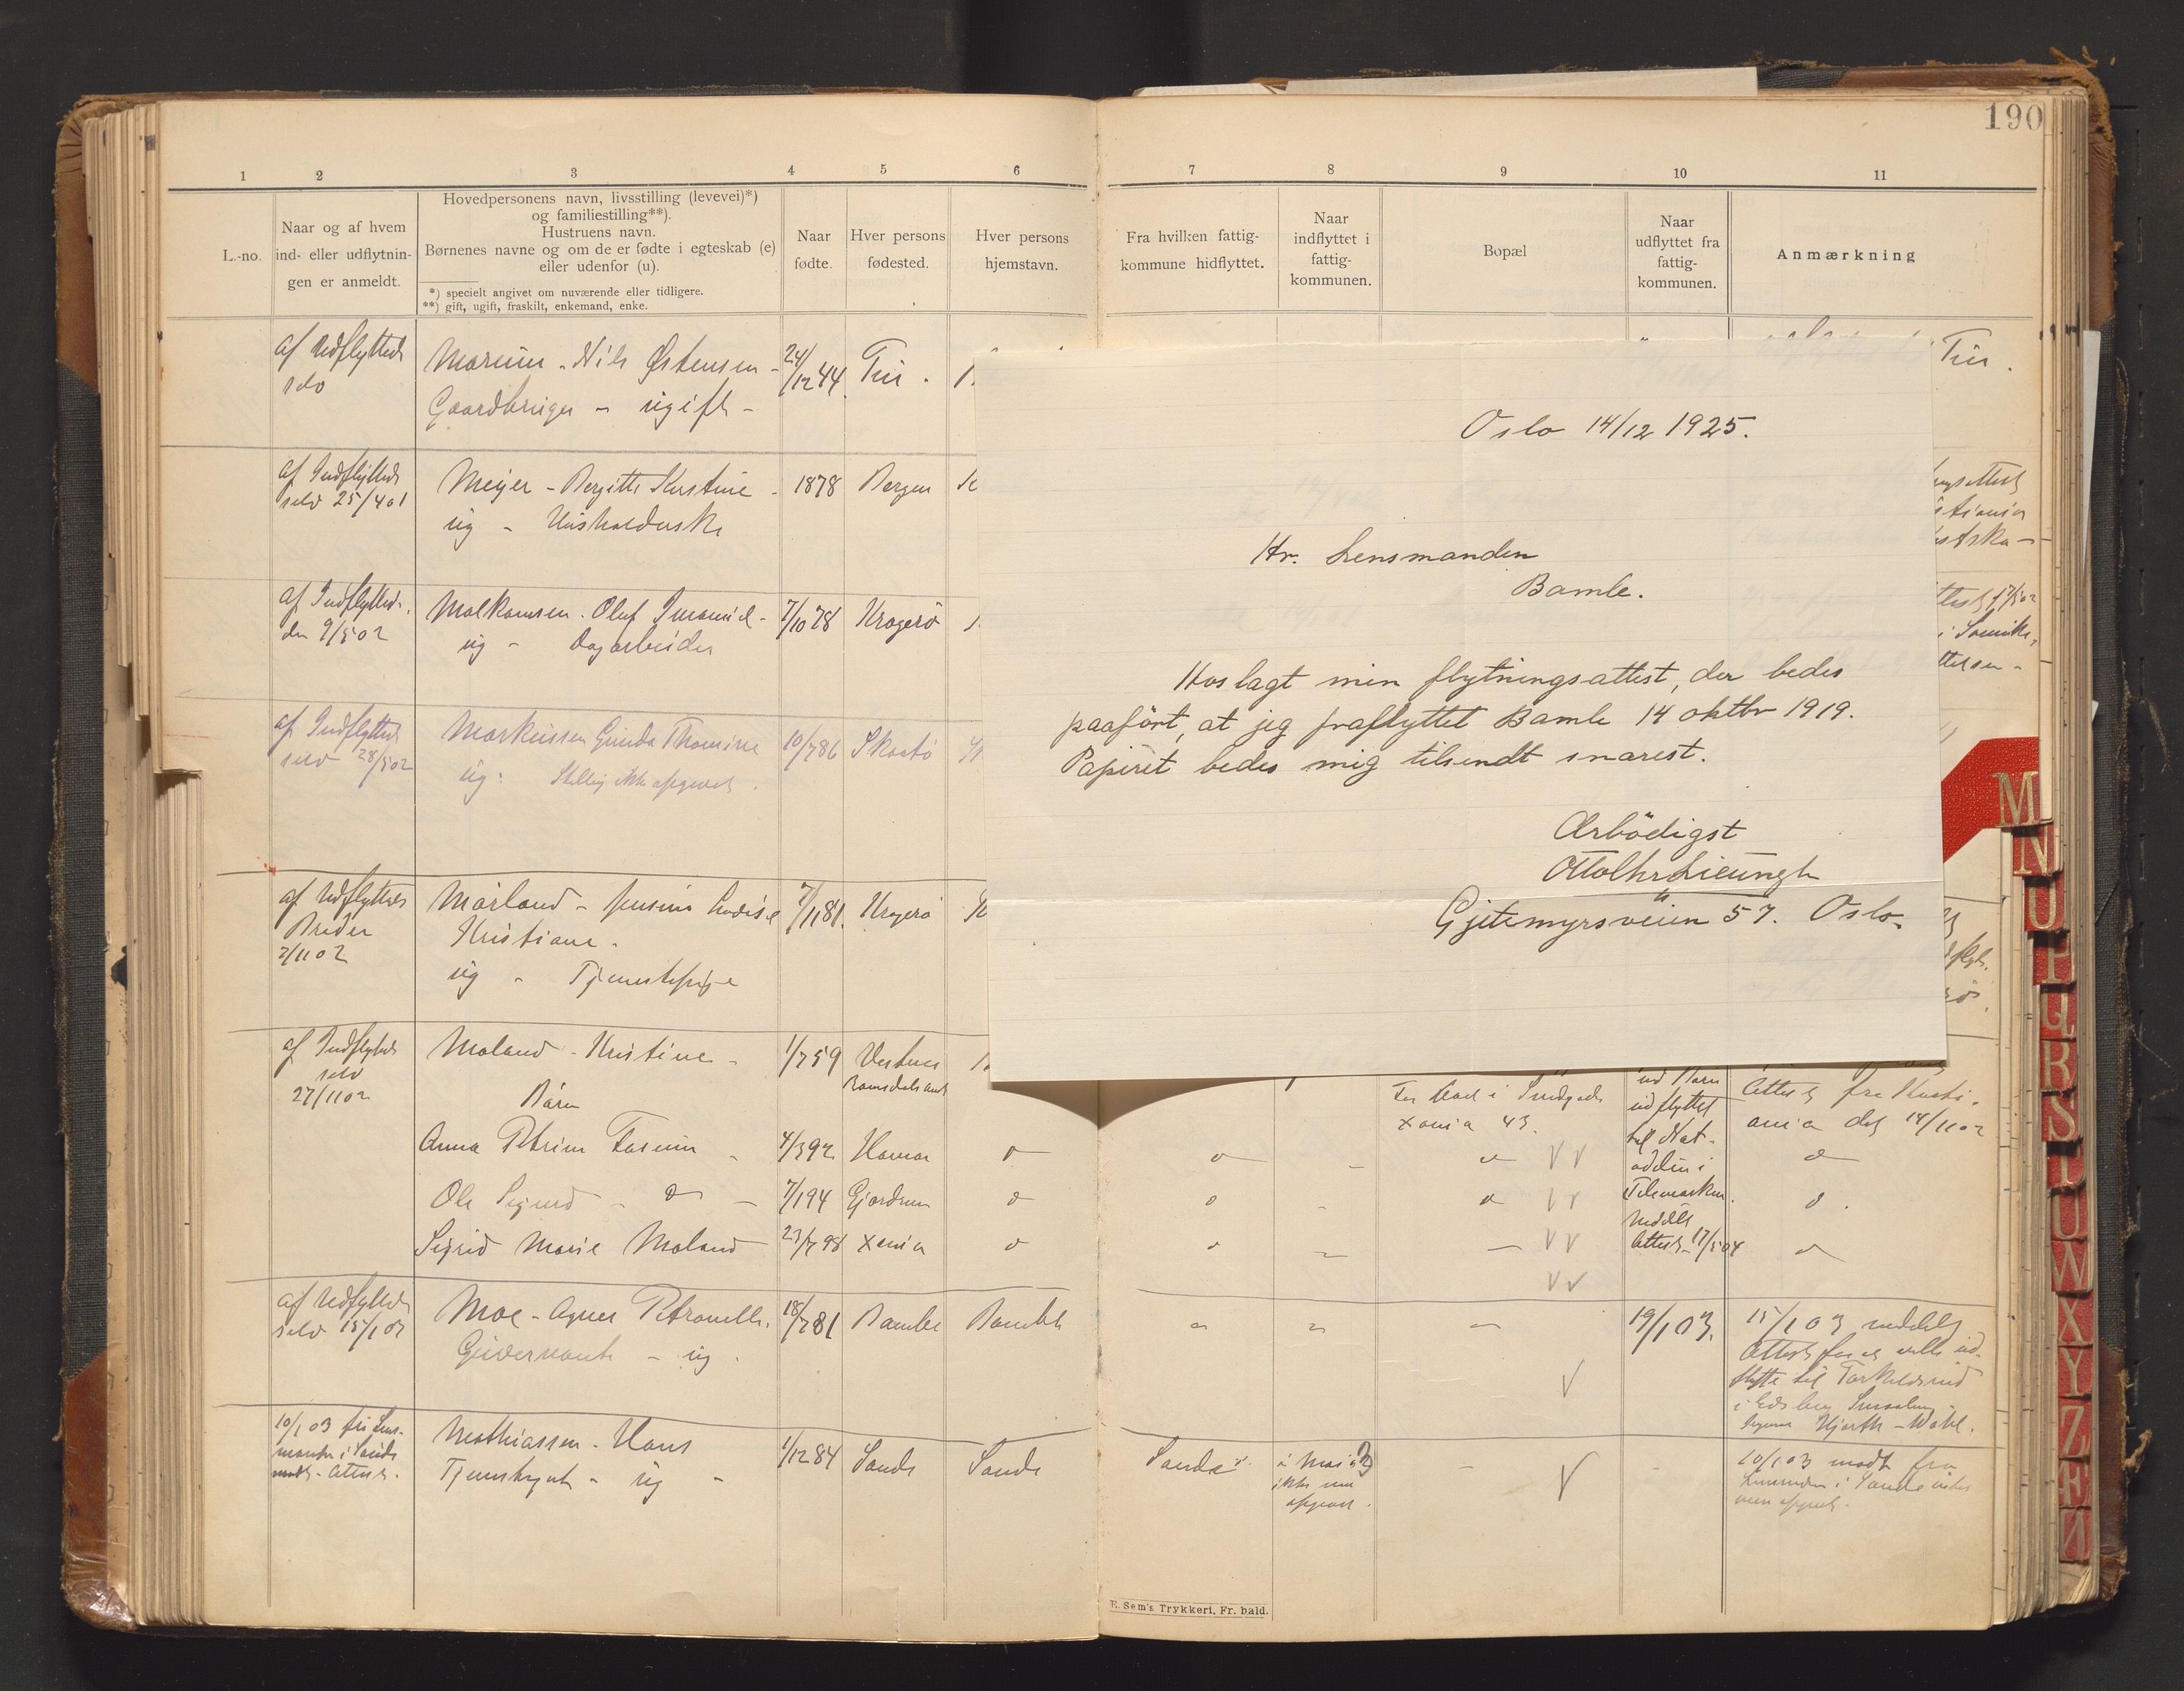 190
1 2 3 4 5 6 7 8 9 10 11
L.-no.
Naar og af hvem
ind- eller udflytnin-
gen er anmeldt.
Hovedpersonens navn, livsstilling (levevei)*)
og familiestilling**).
Hustruens navn.
Børnenes navne og om de er fødte i egteskab (e)
eller udenfor (u).
*) specielt angivet om nuværende eller tidligere.
**) gift, ugift, fraskilt, enkemand, enke.
Naar
fødte.
Hver persons
fødested.
Hver persons
hjemstavn.
Fra hvilken fattig-
kommune hidflyttet.
Naar
indflyttet i
fattig-
kommunen.
Bopæl
Naar
udflyttet fra
fattig-
kommunen.
Anmærkning
af Udflyttede
selv
Nils Østensen
Gaardbruger - ugift -
24/12 44
af Indflyttede
selv 25/4 01
Meijer - Bergitte Kirstine
ug - Husholderske
1878
Bergen
af Indflyttede
den 9/5 02
Malkomsen - Oluf
ug - Dagarbeider
7/10 78
Kragerø
af Indflyttede
selv 28/5 02
Markussen Gunda Thomine
ug: Stilling ikke opgivet.
10/7 86
Skaatø
af Udflyttedes
Broder
2/11 02
Mørland - Lovise
Kristiane -
ug - Tjenestepige
7/11 81.
Kragerø
af Indflyttede
selv
27/11 02
Moland - Kristine -
1/7 59
Vestnes
Romsdals amt
Børn
Anna Petrine
4/3 92
Hamar
Ole Sigurd - do -
7/1 94
Gjerdrum
Sigrid Marie Moland
23/7 98
Xania
Xania 43.
ud flyttet
til Not-
odden i
Telemarken.
Meddelt
Attest 17/5 04
Attest fra Kristi-
ania dat 14/11 02
af Udflyttede
selv 15/1 03
Moe - Agnes Petronelle.
Guvernante - ug.
18/7 81
Bamble
Bamble
19/1 03.
15/1 03 meddelt
Attest for at ville ud-
flytte til
Hjorth - Wahl.
10/1 03 fra Lens-
manden i Sande
modt - Attest.
Mathiassen - Hans
Tjenestegut - ug -
1/12 84
Sande
Sande
Sande
i Mai
ikke
opgivet.
10/1 03 modt fra
Lensmanden i Sande
E. Sem's Trykkeri, Fr. hald.
Oslo 14/12 1925.
Hr. Lensmanden
Bamle.
Hoslagt min flytningsattest, der bedes
paaført, at jeg fraflyttet Bamle 14 oktbr 1919.
Papiret bedes mig tilsendt snarest.
Ærbödigst
Gjetemyrsveien 57. Oslo.
M
N
O
P
Q
R
S
T
U
W
X
Y
Z
Æ